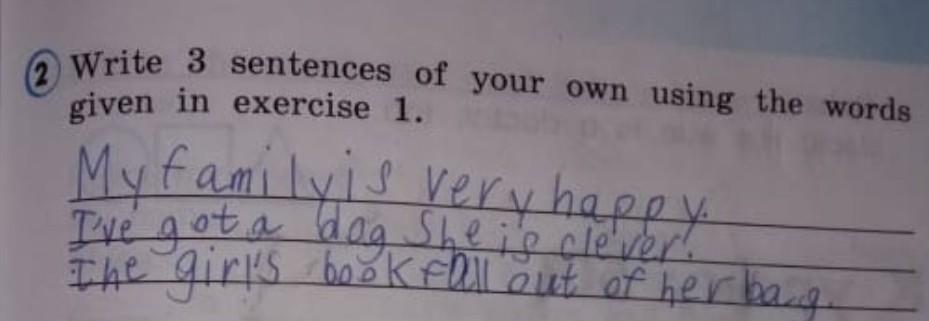 2 Write 3 sentences of your own using the words
given in exercise 1.
My family is very happy.
I've got a dog She is clever!
The girl's book fall out of her bag.